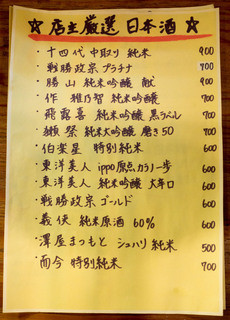 ☆ 店主厳選 日本酒 ☆
・十四代 中取り 純米 900
・戦勝政宗 プラチナ 700
・勝山 純米吟醸 献 900
・作 雅乃智 純米吟醸 700
・飛露喜 純米吟醸 黒ラベル 700
・獺祭 純米大吟醸 磨き50 700
・伯楽星 特別純米 600
・東洋美人 ippo 原点カラノ一歩 600
・東洋美人 純米吟醸 大辛口 600
・戦勝政宗 ゴールド 600
・義侠 純米原酒 60% 600
・澤屋まつもと シュハリ 純米 500
・而今 特別純米 700